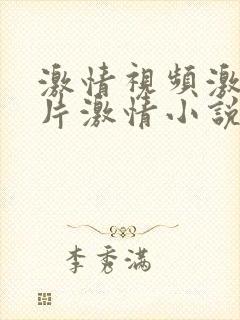 激情視頻激
片激情小說
李秀滿